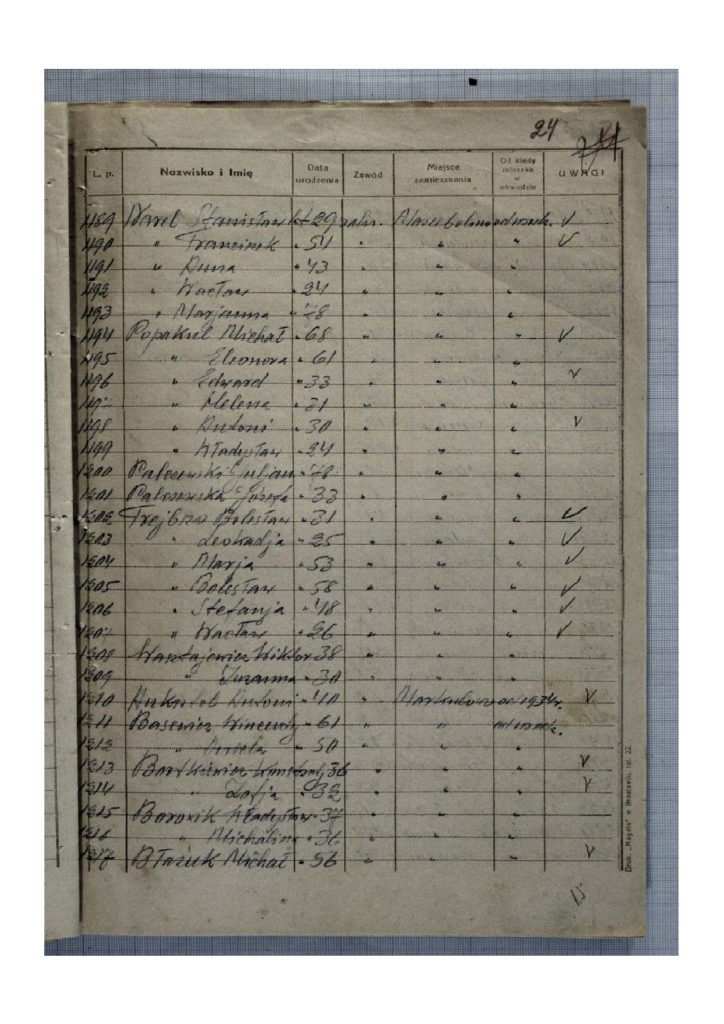 24
L. p. Nazwisko i Imię Data urodzenia Zawód Miejsce zamieszkania Od kiedy mieszka w obwodzie UWAGI
1189 Karel Stanisław 29 roln. od urodz. V
1190 " Franciszek " 54 " " " V
1191 " Anna " 43 " " "
1192 " Wacław " 24 " " "
1193 " Marjanna " 78 " " "
1194 Popakul Michał " 68 " " " V
1195 " Eleonora " 61 " " "
1196 " Edward " 33 " " " V
119 " Helena " 31 " " "
1198 " Antoni " 30 " " " V
1199 " Władysław " 24 " " "
1200 Palczewski Juljan " 78 " " "
1201 Palczewska Józefa " 33 " " "
1202 Bolesław " 31 " " " V
1203 " Leokadja " 25 " " " V
1204 " Marja " 53 " " " V
1205 " Bolesław " 58 " " " V
1206 " Stefanja " 48 " " " V
1207 " Wacław " 26 " " " V
1208 Wiktor 38 " " "
1209 " Zuzanna " 30 " " "
1210 Antoni " 40 " od 1934 r. V
1211 Basewicz Wincenty " 61 " " od urodz.
1212 " Aniela " 50 " " "
1213 Bartkiewicz Konstanty 36 " " " V
1214 " Zofja " 32 " " " V
1215 Borowik Władysław " 37 " " "
1216 " Michalina " 36 " " "
1217 Błażuk Michał " 56 " " " V
15